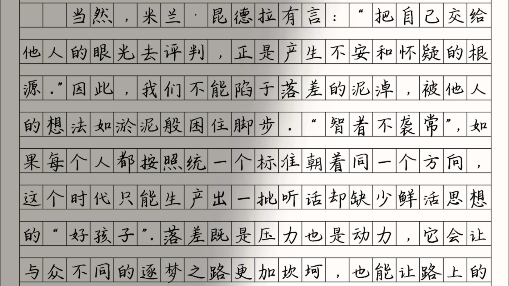 当然，米兰·昆德拉有言：“把自己交给
他人的眼光去评判，正是产生不安和怀疑的根
源.”因此，我们不能陷于落差的泥淖，被他人
的想法如淤泥般困住脚步.“智者不袭常”，如
果每个人都按照统一个标准朝着同一个方向，
这个时代只能生产出一批听话却缺少鲜活思想
的“好孩子”.落差既是压力也是动力，它会让
与众不同的逐梦之路更加坎坷，也能让路上的